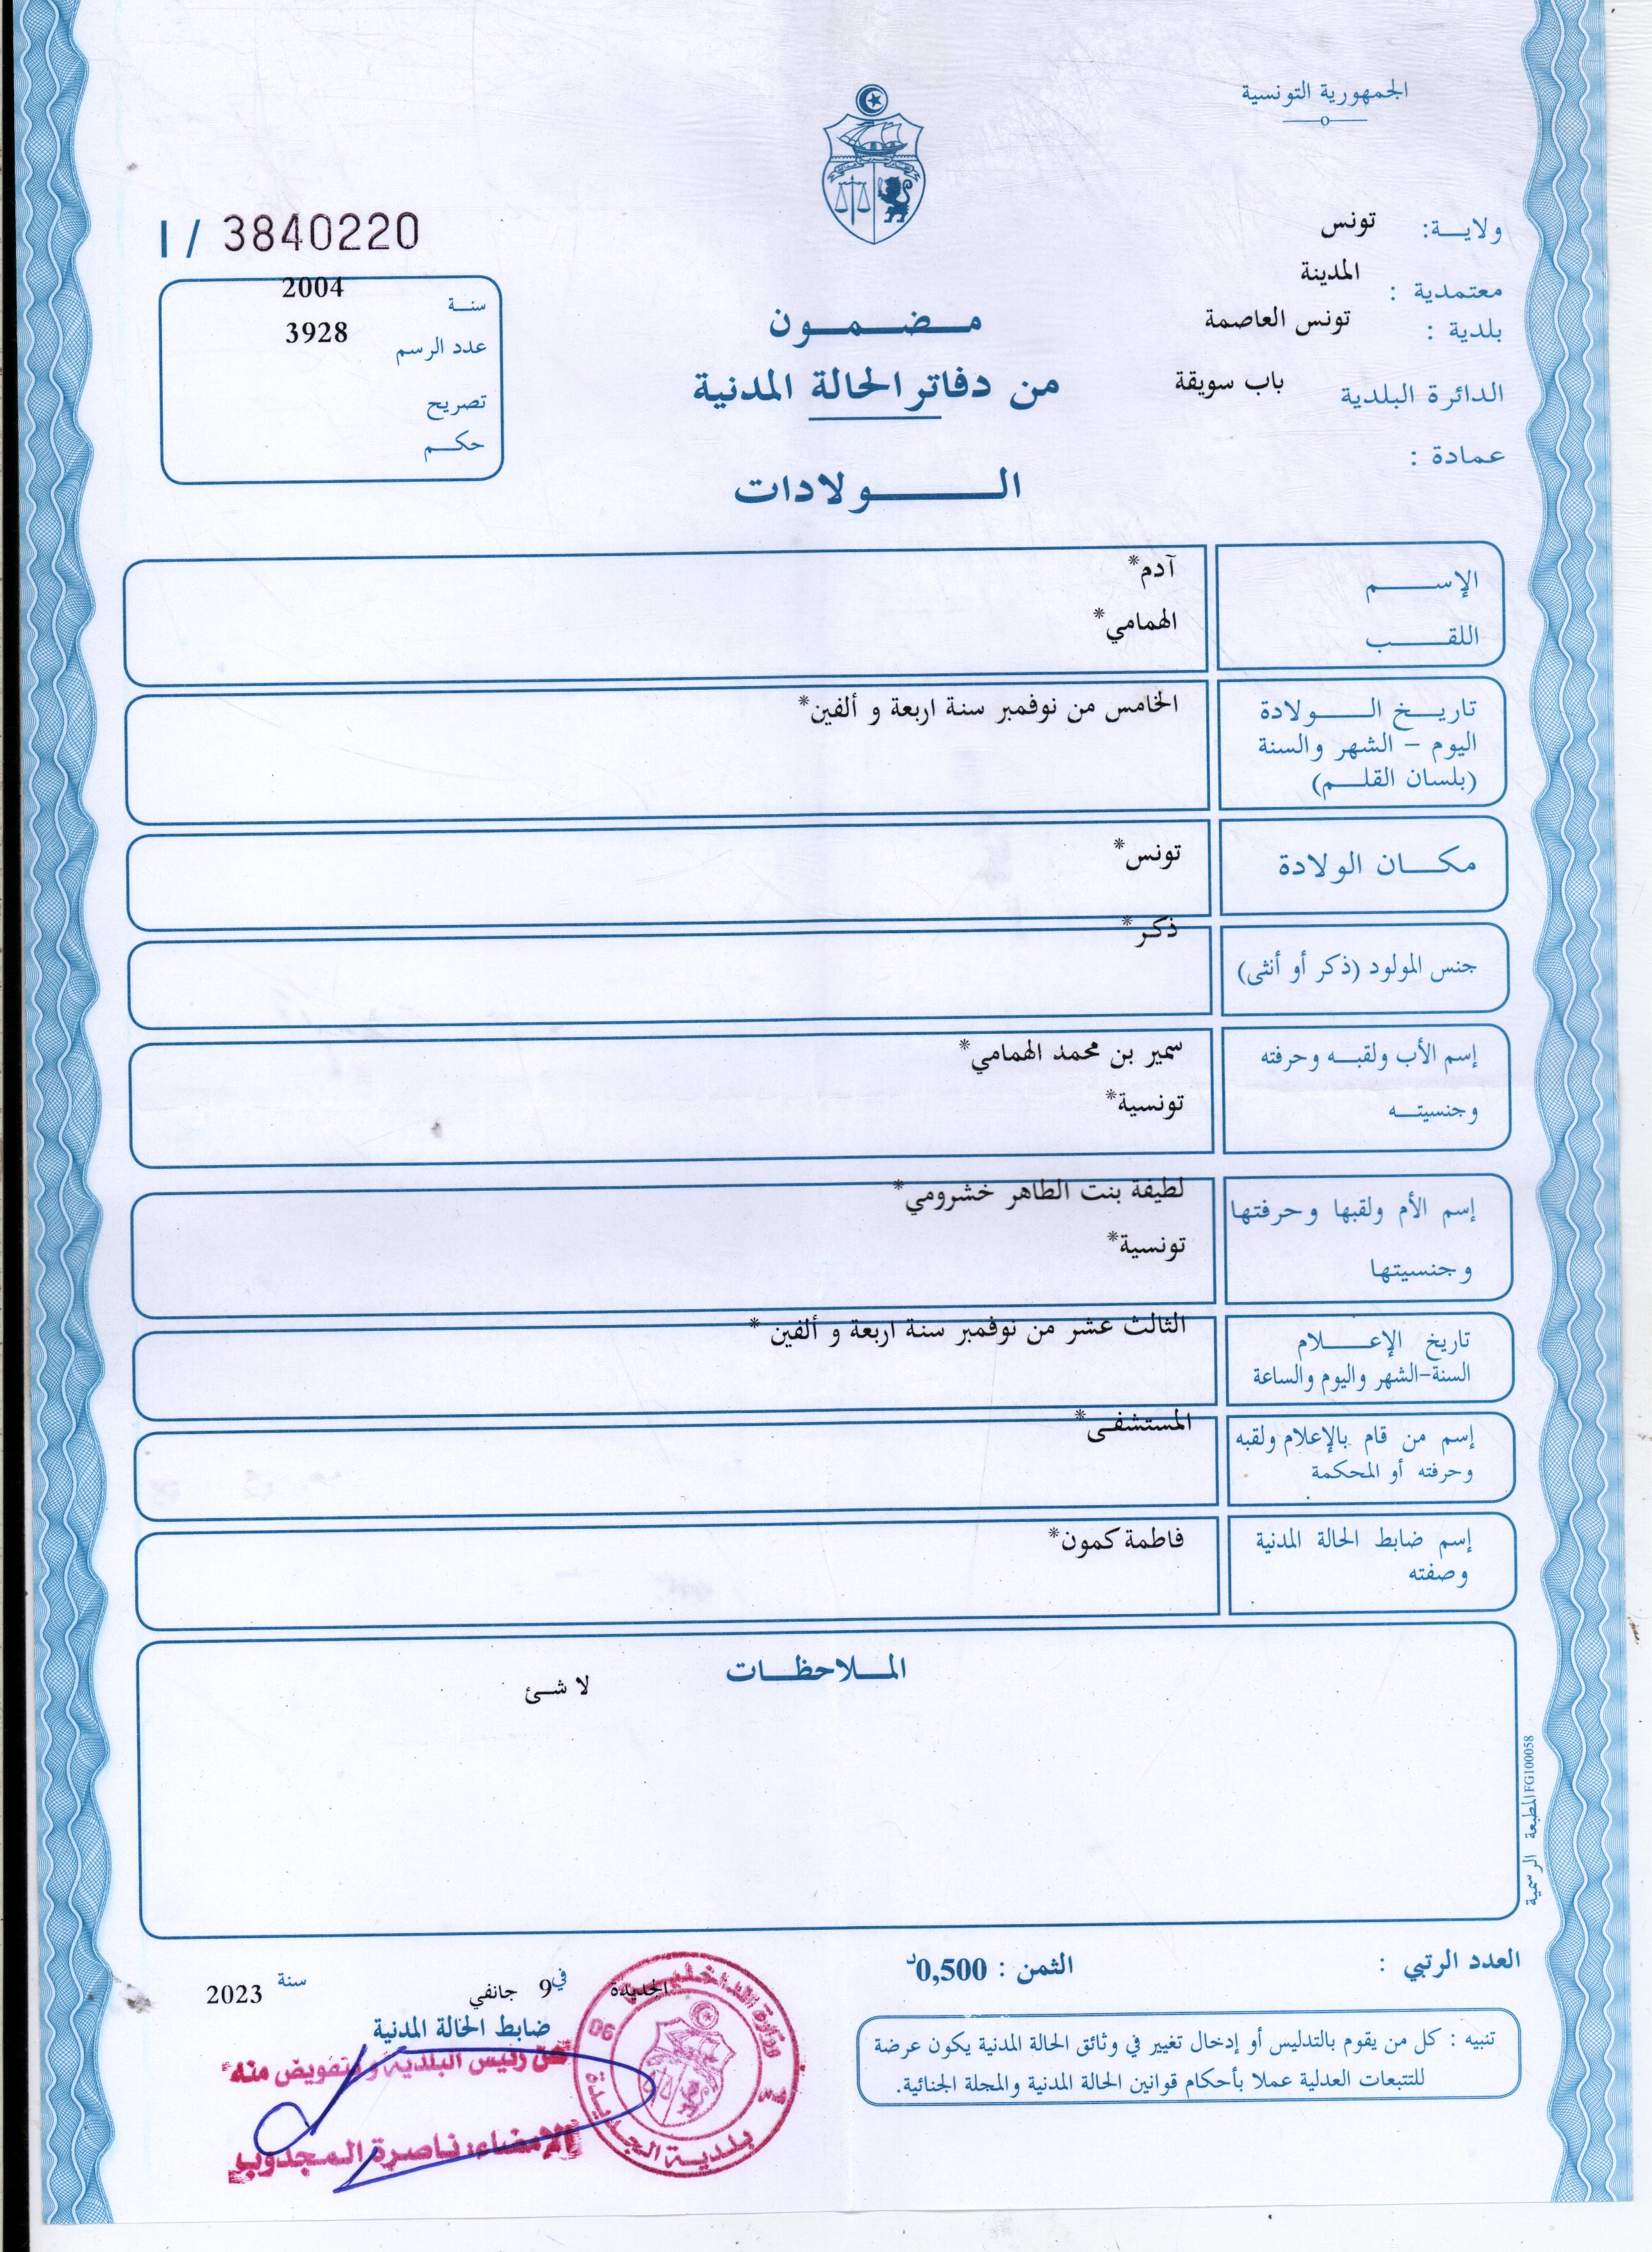 الجمهورية التونسية
ولايـــة: تونس
معتمدية : المدينة
بلدية : تونس العاصمة
الدائرة البلدية باب سويقة
عمادة :
I / 3840220
سنـــة 2004
عدد الرسم 3928
تصريح
حكـــم
مـــضـــمـــون
من دفاتر الحالة المدنية
الـــــولادات
الإســـــم آدم*
اللقـــــب الهمامي*
تاريـــخ الـــــولادة الخامس من نوفمبر سنة اربعة و ألفين*
اليوم – الشهر والسنة
(بلسان القلـــم)
مكـــان الولادة تونس*
جنس المولود (ذكر أو أنثى) ذكر*
إسم الأب ولقبـــه وحرفته سمير بن محمد الهمامي*
وجنسيتـــه تونسية*
إسم الأم ولقبها وحرفتها لطيفة بنت الطاهر خشرومي*
وجنسيتها تونسية*
تاريخ الإعـــــلام الثالث عشر من نوفمبر سنة اربعة و ألفين *
السنة-الشهر واليوم والساعة
إسم من قام بالإعلام ولقبه المستشفى*
وحرفته أو المحكمة
إسم ضابط الحالة المدنية فاطمة كمون*
وصفته
المـــلاحظـــات
لا شئ
المطبعة الرسمية FG100058
العدد الرتبي :
الثمن : 0,500د
تنبيه : كل من يقوم بالتدليس أو إدخال تغيير في وثائق الحالة المدنية يكون عرضة
للتتبعات العدلية عملا بأحكام قوانين الحالة المدنية والمجلة الجنائية.
الجديدة في 9 جانفي سنة 2023
ضابط الحالة المدنية
عن رئيس البلدية وبتفويض منه
الإمضاء: ناصرة المجدوب
وزارة الداخلية
06
بلدية الجديدة